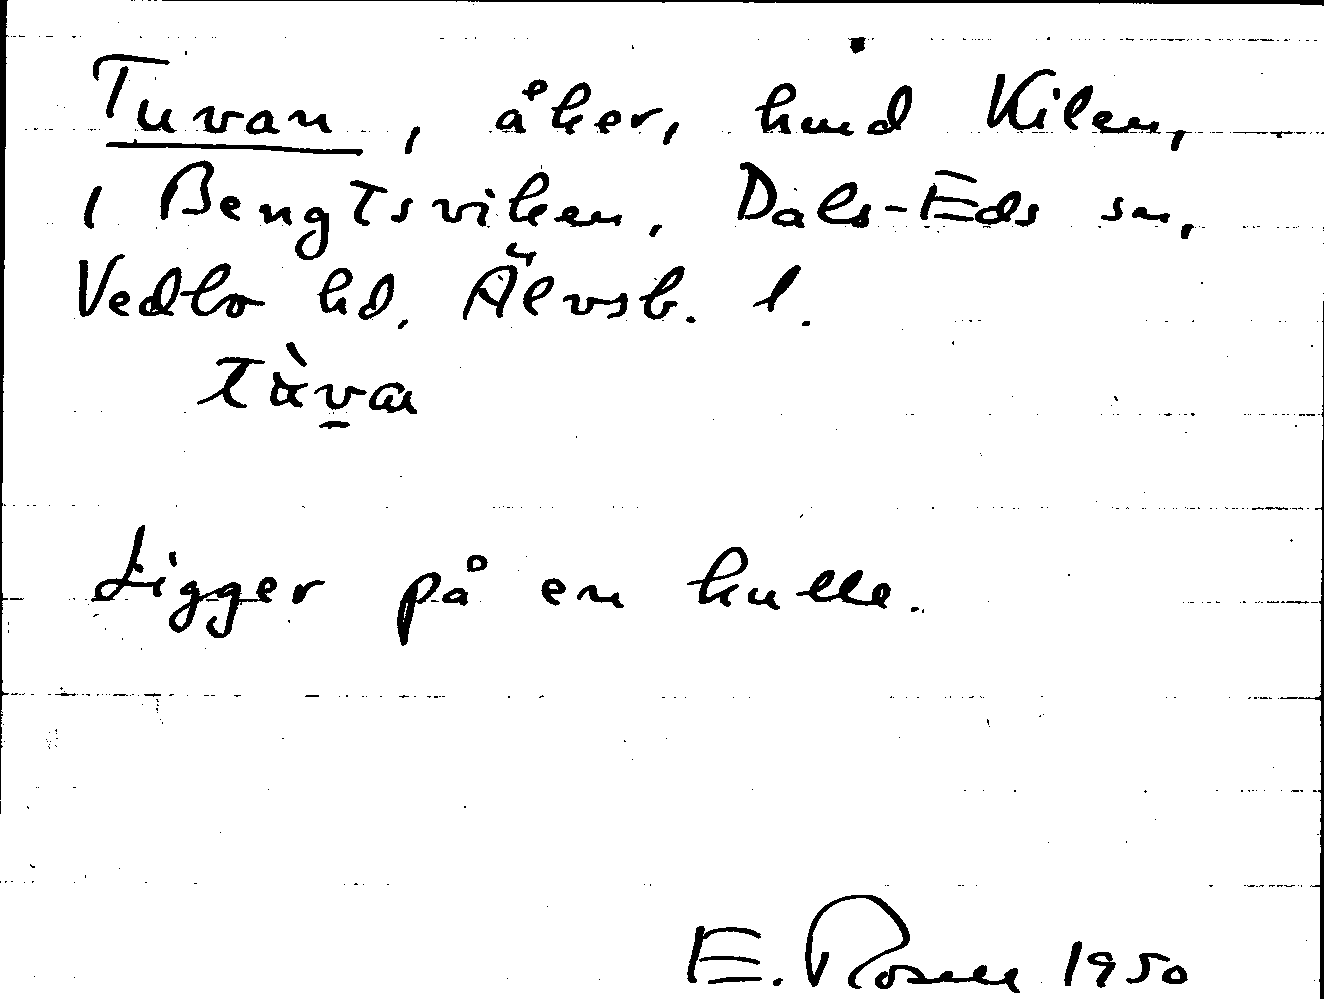 Tuvan, åker, hmd Kilen,
1 Bengtsviken, Dals-Eds sn,
Vedbo hd, Älvsb. l.
Ligger på en kulle.
E. Rosell 1950